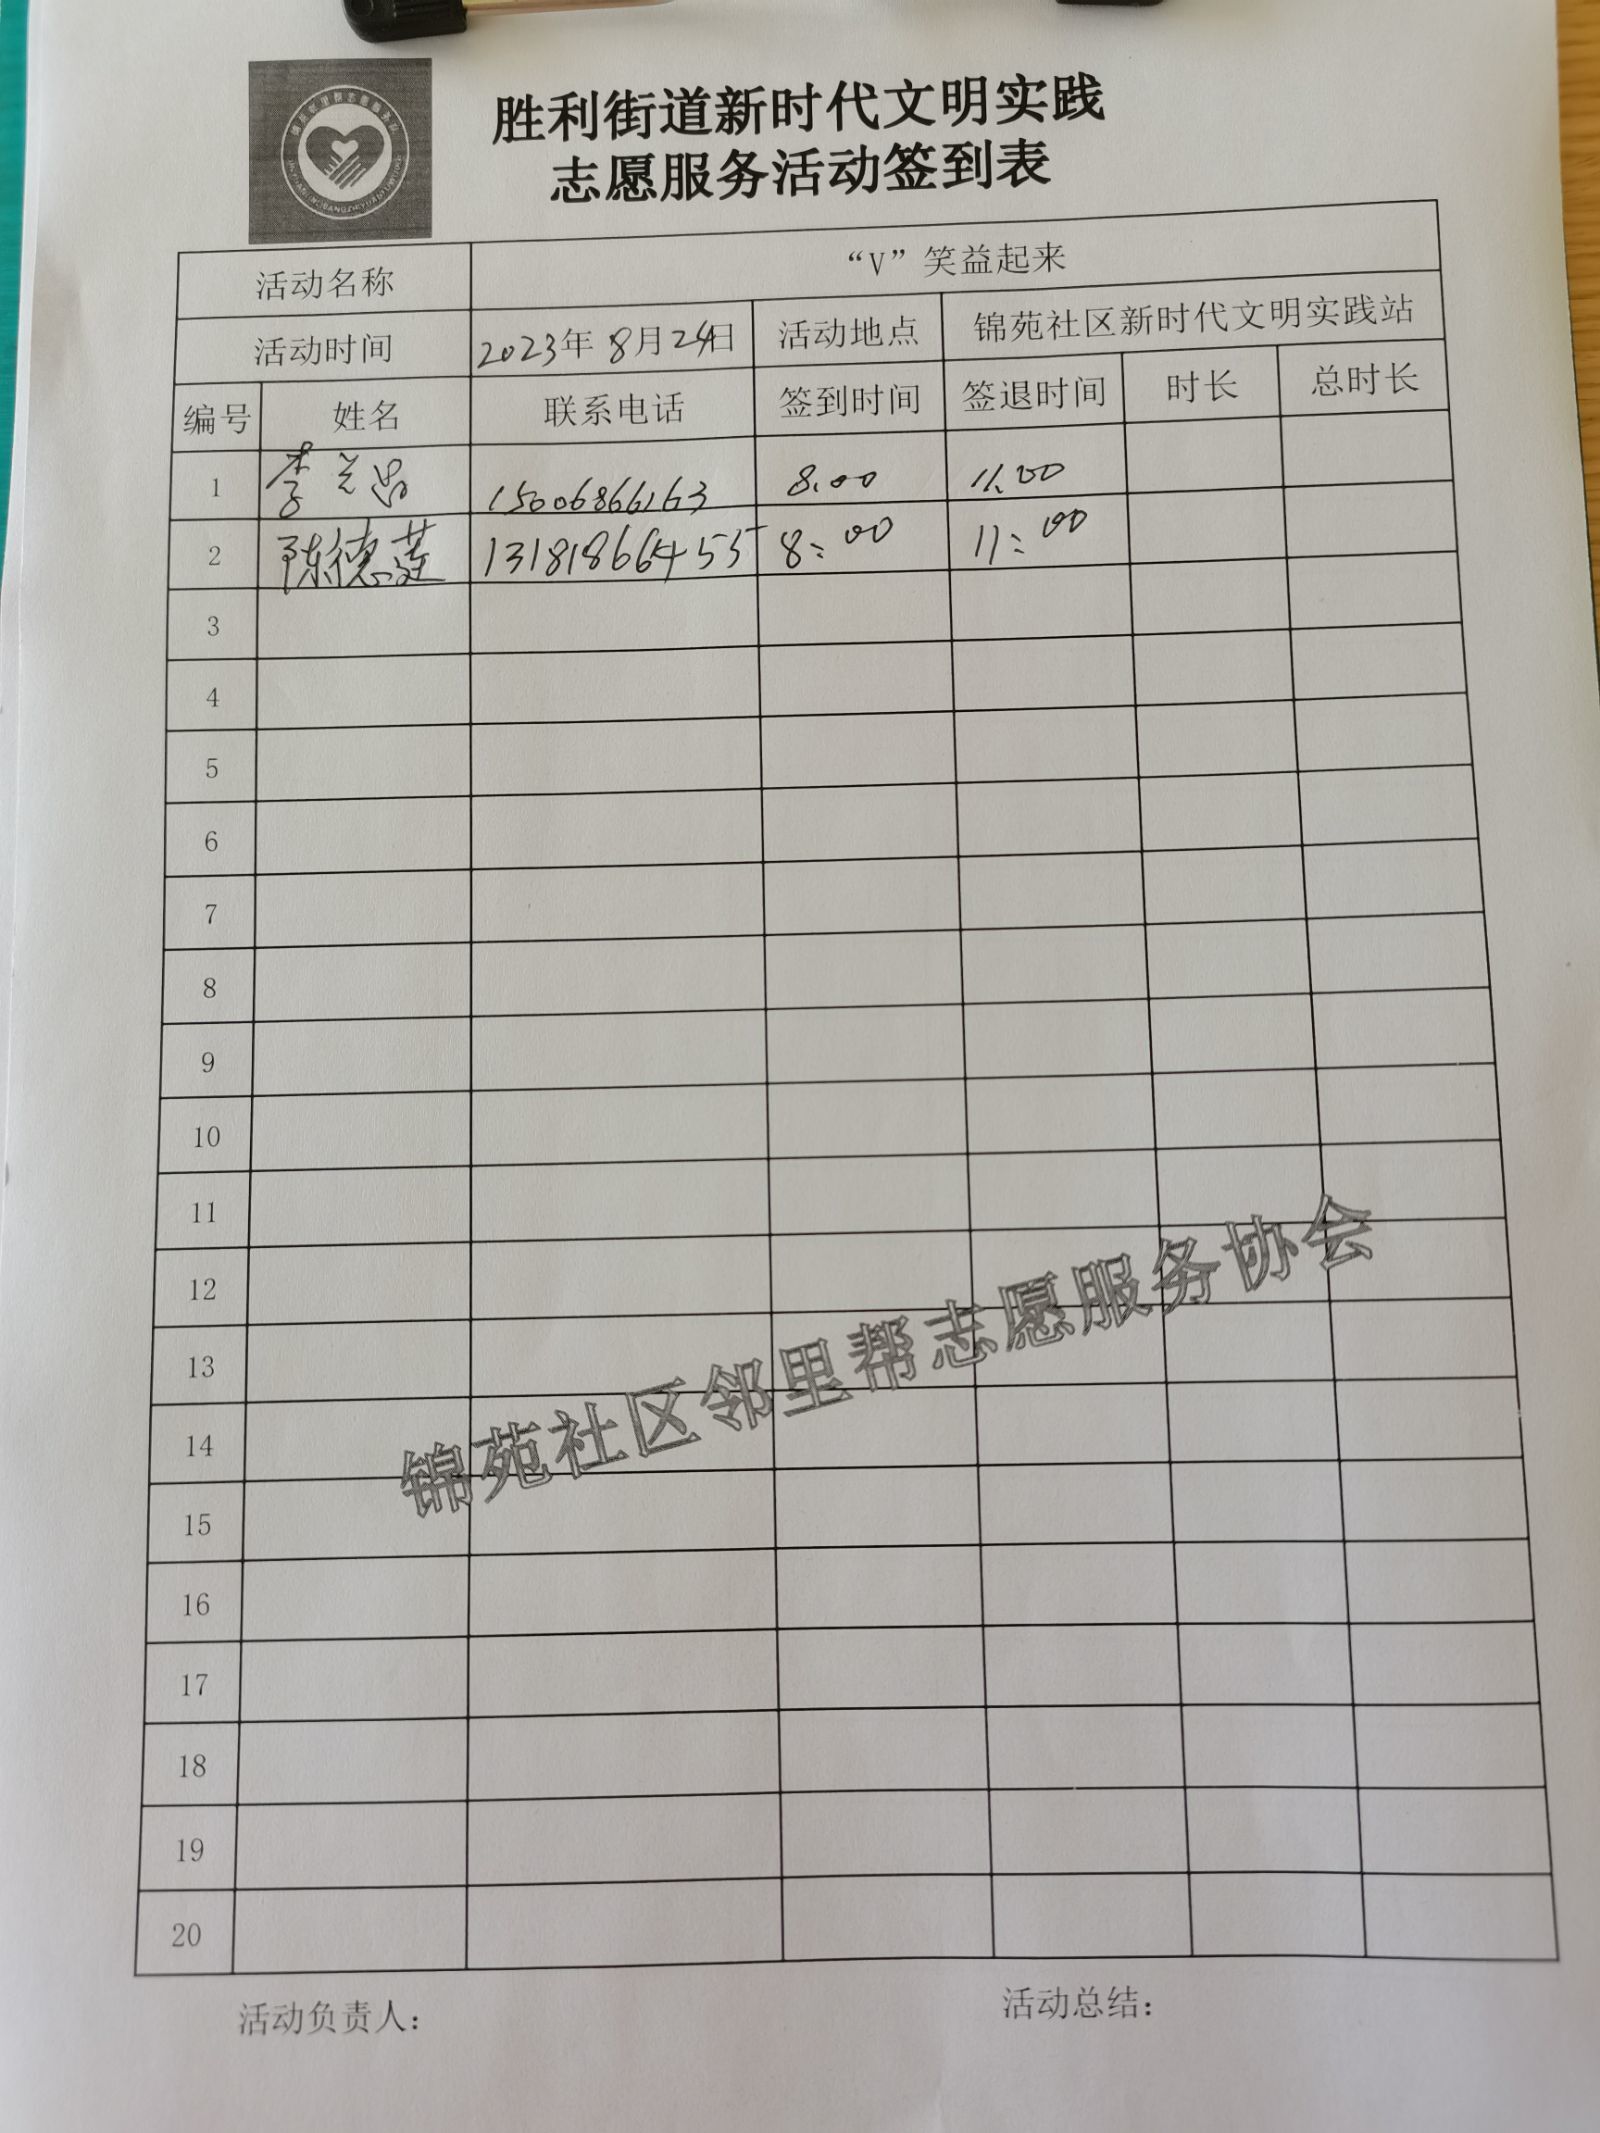 胜利街道新时代文明实践
志愿服务活动签到表
活动名称 “V”笑益起来
活动时间 2023年 8月24日 活动地点 锦苑社区新时代文明实践站
编号 姓名 联系电话 签到时间 签退时间 时长 总时长
1 李兰 15006866163 8.00 11.00
2 陈德莲 13181866455 8:00 11:00
3
4
5
6
7
8
9
10
11
12
13
14
15
16
17
18
19
20
锦苑社区邻里帮志愿服务协会
活动负责人: 活动总结: